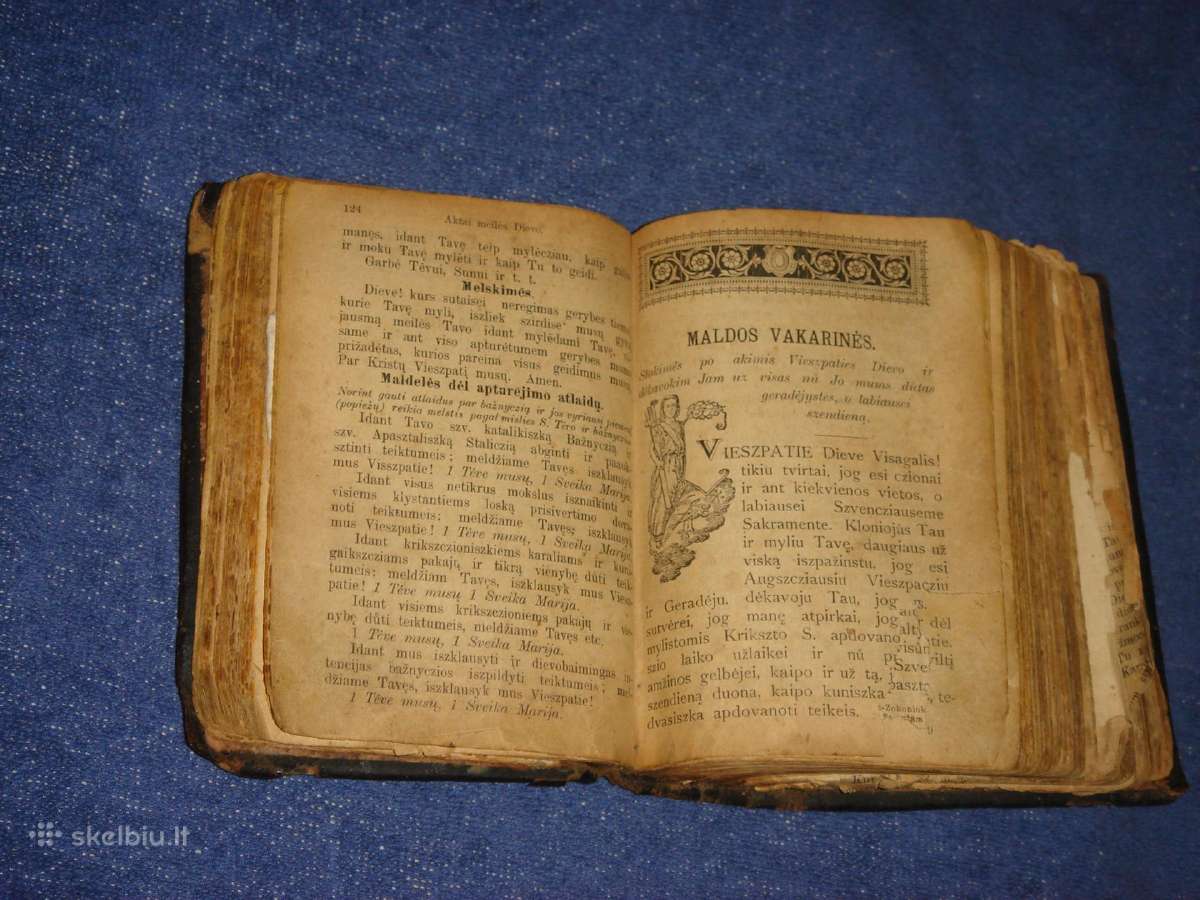 124
Aktai meilės Dievo.
manęs, idant Tavę teip mylėcziau, kaip
ir moku Tavę mylėti ir kaip Tu to geidi.
Garbė Tėvui, Sunui ir t. t.
Melskimės.
Dieve! kurs sutaisei neregimas gerybes tiems,
kurie Tavę myli, iszliek szirdise musų
jausmą meilės Tavo idant mylėdami Tavę,
same ir ant viso apturėtumem gerybes mums
prižadėtas, kurios pareina visus geidimus musų.
Par Kristų Vieszpatį musų. Amen.
Maldelės dėl apturėjimo atlaidų.
Norint gauti atlaidus par bažnyczią ir jos vyriausį
(popiežų) reikia melstis pagal mislies S. Tėvo ir
Idant Tavo szv. katalikiszką Bažnyczią ir
szv. Apasztaliszką Staliczią abginti ir
sztinti teiktumeis; meldžiame Tavęs iszklausyk
mus Visszpatie! 1 Tėve musų, 1 Sveika Marija.
Idant visus netikrus mokslus isznaikinti ir
visiems klystantiems loską prisivertimo
noti teiktumeis; meldžiame Tavęs; iszklausyk
mus Vieszpatie! 1 Tėve musų, 1 Sveiką Marija.
Idant krikszczioniszkiems karaliams ir
gaikszcziams pakajų ir tikrą vienybę dūti
tumeis; meldžiam Tavęs, iszklausyk mus Viesz-
patie! 1 Tėve musų 1 Sveika Marija.
Idant visiems krikszczioniems pakajų ir vie-
nybę dūti teiktumeis, meldžiame Tavęs etc.
1 Tėve musų, 1 Sveika Marija.
Idant mus iszklausyti ir dievobaimingas in-
tencijas bažnyczios iszpildyti teiktumeis; mel-
džiame Tavęs, iszklausyk mus Vieszpatie!
1 Tėve musų, 1 Sveika Marija.
MALDOS VAKARINĖS.
Stokimės po akimis Vieszpaties Dievo ir
dėkavokim Jam už visas nū Jo mums dūtas
geradėjystes, o labiausei
szendieną.
VIESZPATIE Dieve Visagalis!
tikiu tvirtai, jog esi czionai
ir ant kiekvienos vietos, o
labiausei Szvencziauseme
Sakramente. Kloniojūs Tau
ir myliu Tavę, daugiaus už
viską iszpažinstu, jog esi
Augszcziausiu Vieszpacziu
ir Geradėju, dėkavoju Tau, jog
survėrei, jog manę atpirkai, jog dėl
mylistomis Krikszto S. apdovano
szio laiko užlaikei ir nū
amžinos gelbėjei, kaipo ir už tą,
szendieną duona, kaipo kuniszka te-
dvasiszka apdovanoti teikeis.
9
skelbiu.lt